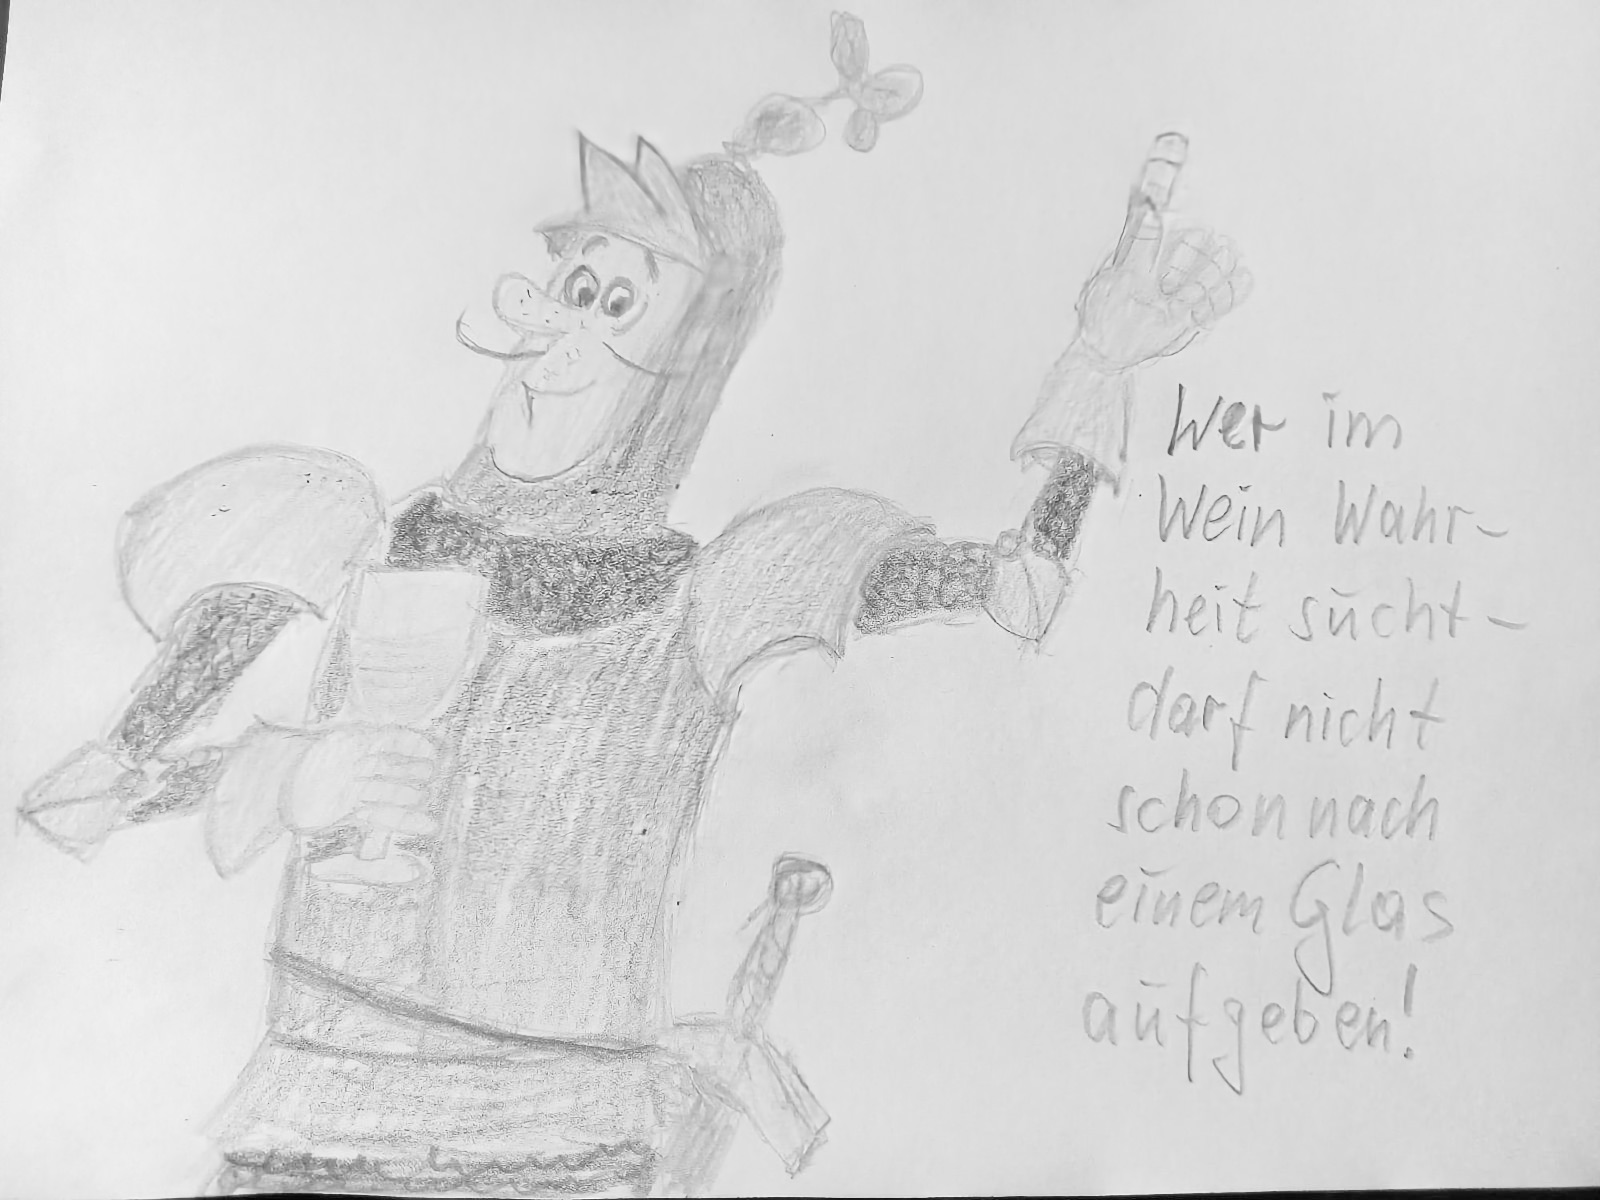 Wer im
Wein Wahr-
heit sucht-
darf nicht
schon nach
einem Glas
aufgeben!